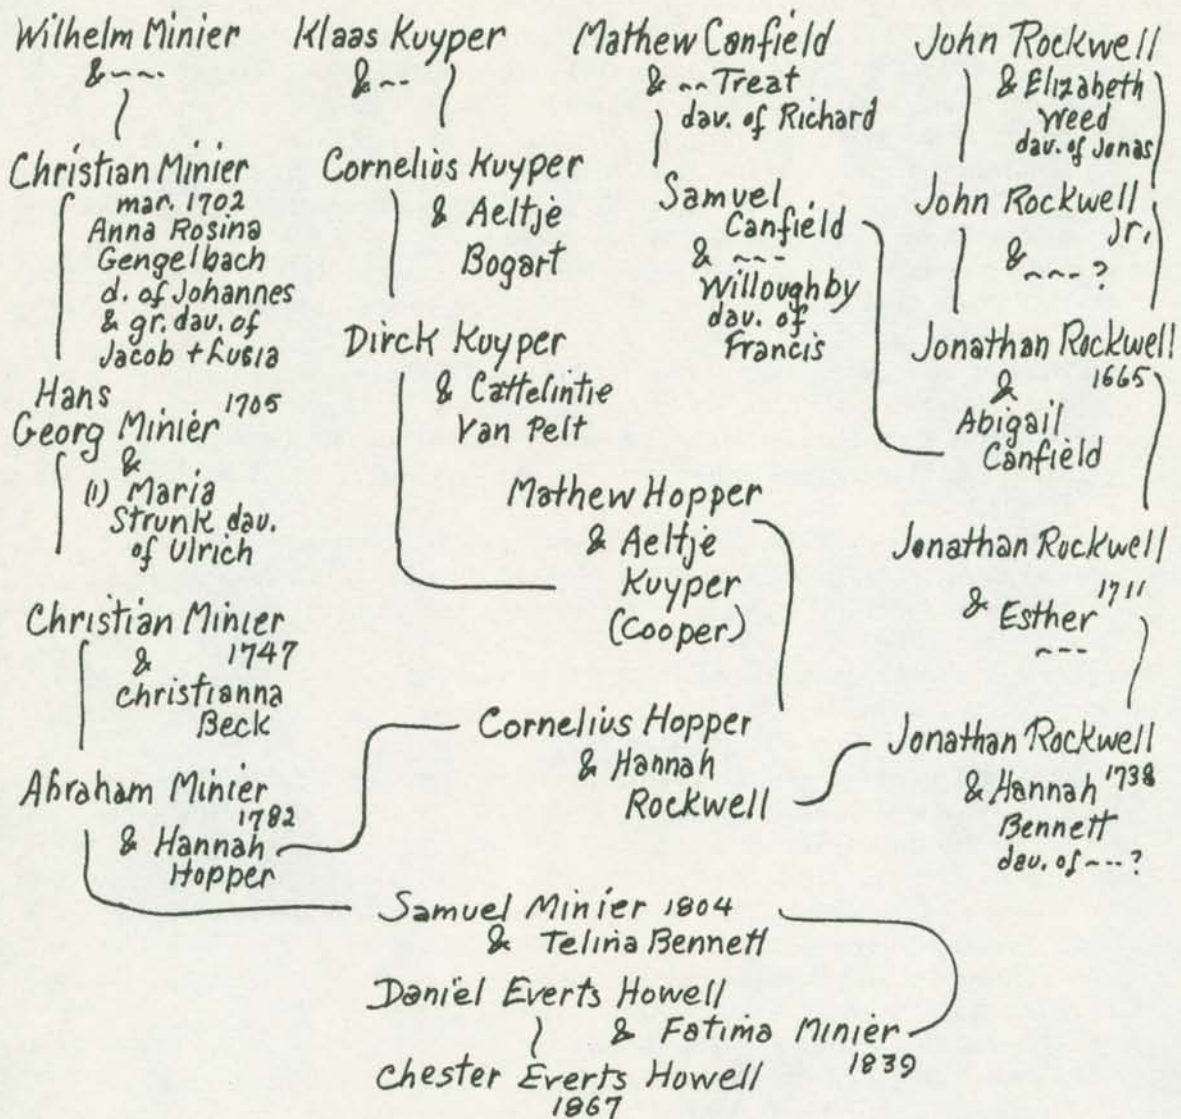 Wilhelm Minier
& ~~~
Christian Minier
mar. 1702
Anna Rosina
Gengelbach
d. of Johannes
& gr. dav. of
Jacob + Lusia
Hans
Georg Minier 1705
&
(1) Maria
Strunk dav.
of Ulrich
Christian Minier
& 1747
Christianna
Beck
Abraham Minier
1782
& Hannah
Hopper
Klaas Kuyper
& ~~
Cornelius Kuyper
& Aeltje
Bogart
Dirck Kuyper
& Cattelintie
Van Pelt
Mathew Canfield
& ~~Treat
dav. of Richard
Samuel
Canfield
& ~~~
Willoughby
dav. of
Francis
Mathew Hopper
& Aeltje
Kuyper
(Cooper)
Cornelius Hopper
& Hannah
Rockwell
John Rockwell
& Elizabeth
Weed
dav. of Jonas
John Rockwell
Jr.
& ~~~?
Jonathan Rockwell
& 1665
Abigail
Canfield
Jonathan Rockwell
1711
& Esther
~~~
Jonathan Rockwell
& Hannah 1738
Bennett
dav. of ~~~?
Samuel Minier 1804
& Telina Bennett
Daniel Everts Howell
& Fatima Minier
1839
Chester Everts Howell
1867